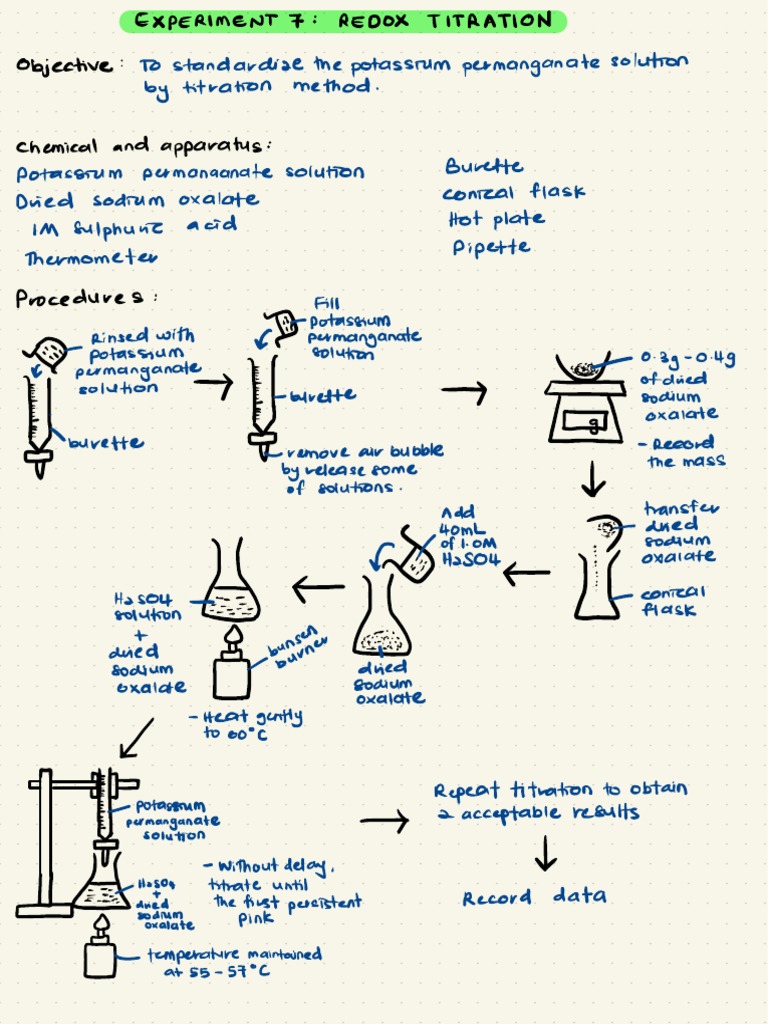 EXPERIMENT 7: REDOX TITRATION
Objective: To standardize the potassium permanganate solution
by titration method.
Chemical and apparatus:
Potassium permanganate solution
Dried sodium oxalate
1M sulphuric acid
Thermometer
Burette
conical flask
Hot plate
Pipette
Procedures:
Rinsed with
potassium
permanganate
solution
burette
Fill
potassium
permanganate
solution
burette
remove air bubble
by release some
of solutions.
0.3g-0.4g
of dried
sodium
oxalate
g
- Record
the mass
transfer
dried
sodium
oxalate
conical
flask
Add
40mL
of 1.0M
H2SO4
dried
sodium
oxalate
H2SO4
solution
+
dried
sodium
oxalate
bunsen
burner
- Heat gently
to 60°C
potassium
permanganate
solution
H2SO4
+
dried
sodium
oxalate
- Without delay,
titrate until
the first persistent
pink
temperature maintained
at 55-57°C
Repeat titration to obtain
2 acceptable results
Record data